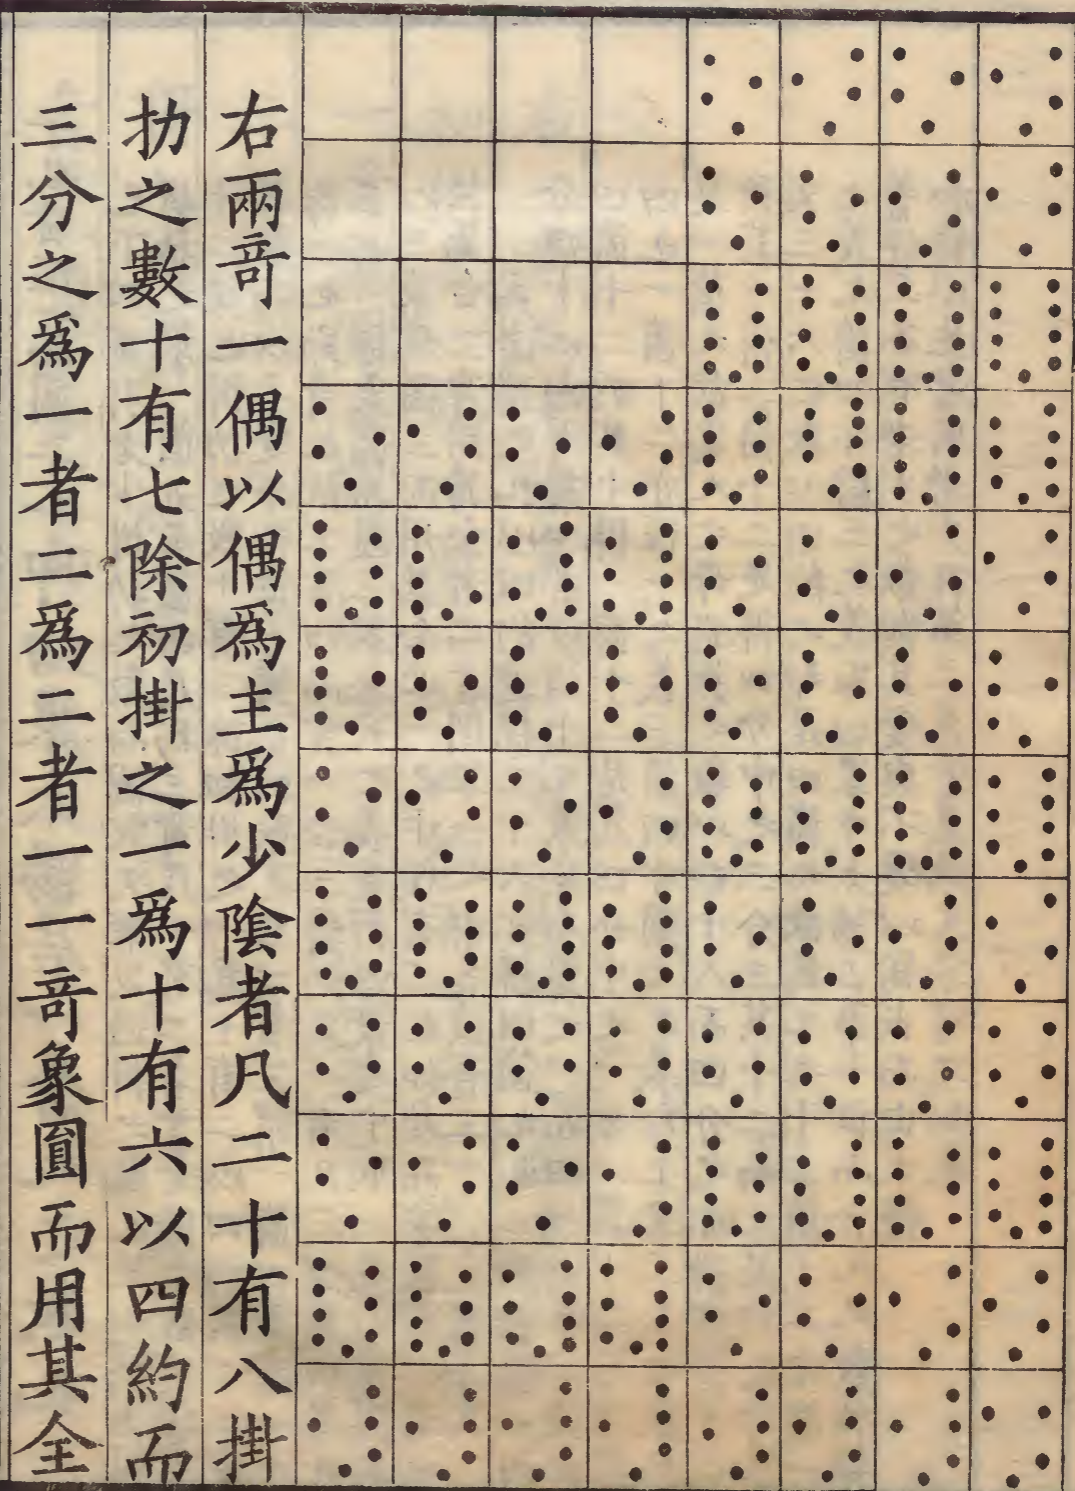 右兩竒一偶以偶爲主爲少隂者凡二十有八掛
扐之數十有七除初掛之一爲十有六以四約而
三分之爲一者二爲二者一一竒象圓而用其全